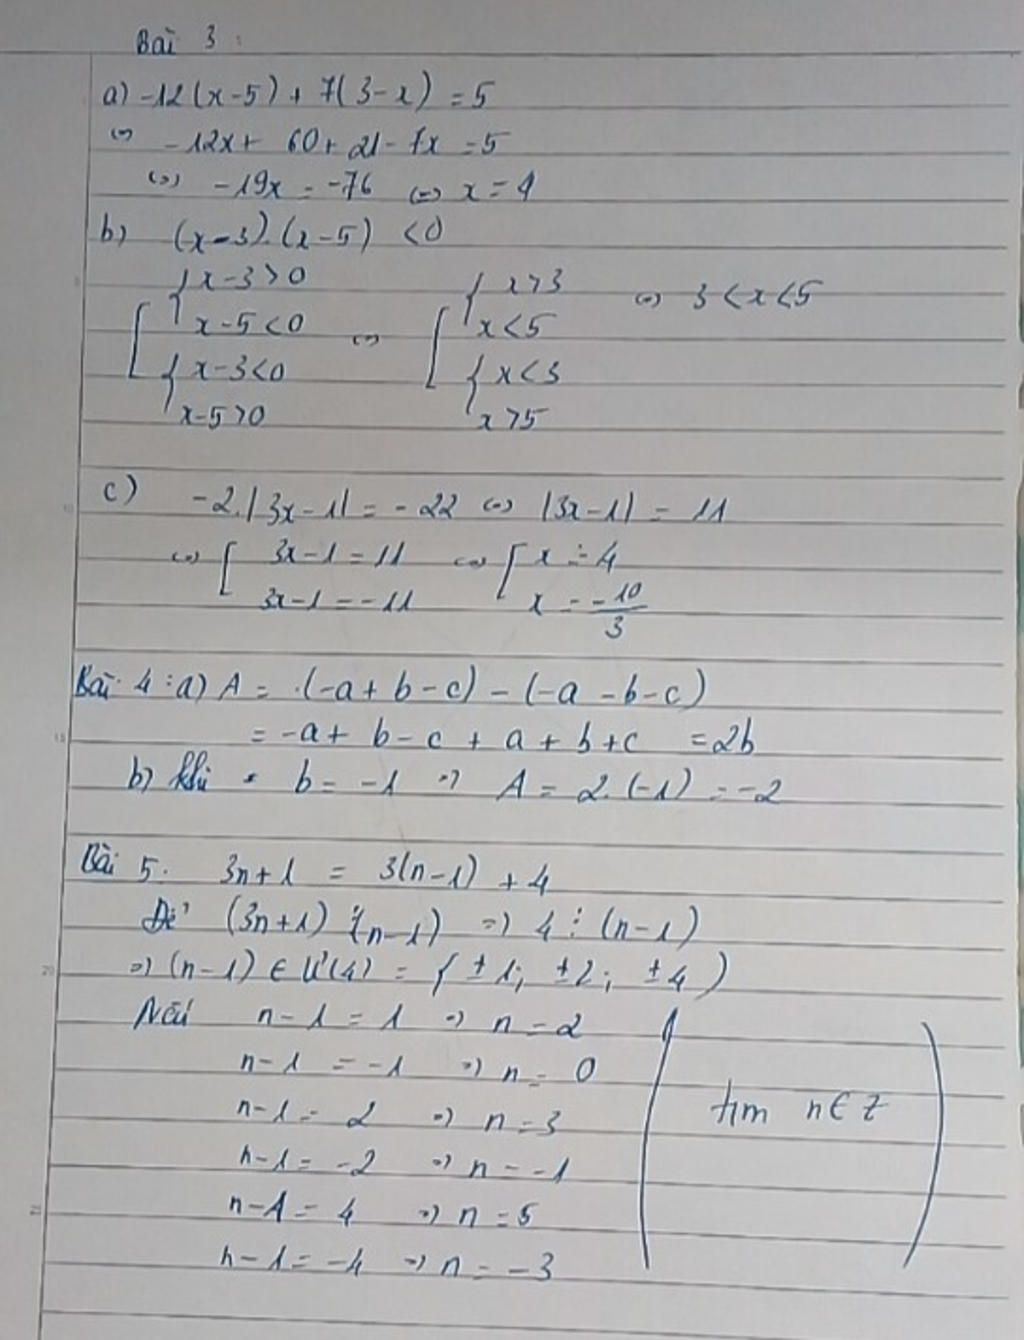 Bài 3:
a) -12(x-5) + 7(3-x) = 5
<=> -12x + 60 + 21 - 7x = 5
<=> -19x = -76 <=> x = 4
b) (x-3).(x-5) < 0
[ { x-3>0 <=> [ { x>3 <=> 3<x<5
x-5<0 x<5
{ x-3<0 { x<3
x-5>0 x>5
c) -2.|3x-1| = -22 <=> |3x-1| = 11
<=> [ 3x-1 = 11 <=> [ x = 4
3x-1 = -11 x = -10/3
Bài 4: a) A = (-a+b-c) - (-a-b-c)
= -a + b - c + a + b + c = 2b
b) khi b = -1 => A = 2.(-1) = -2
Bài 5. 3n+1 = 3(n-1) + 4
Để (3n+1) ⋮ (n-1) => 4 ⋮ (n-1)
=> (n-1) ∈ Ư(4) = { ±1; ±2; ±4 }
Nếu n-1 = 1 => n = 2
n-1 = -1 => n = 0
n-1 = 2 => n = 3
n-1 = -2 => n = -1
n-1 = 4 => n = 5
n-1 = -4 => n = -3
( tìm n ∈ Z )